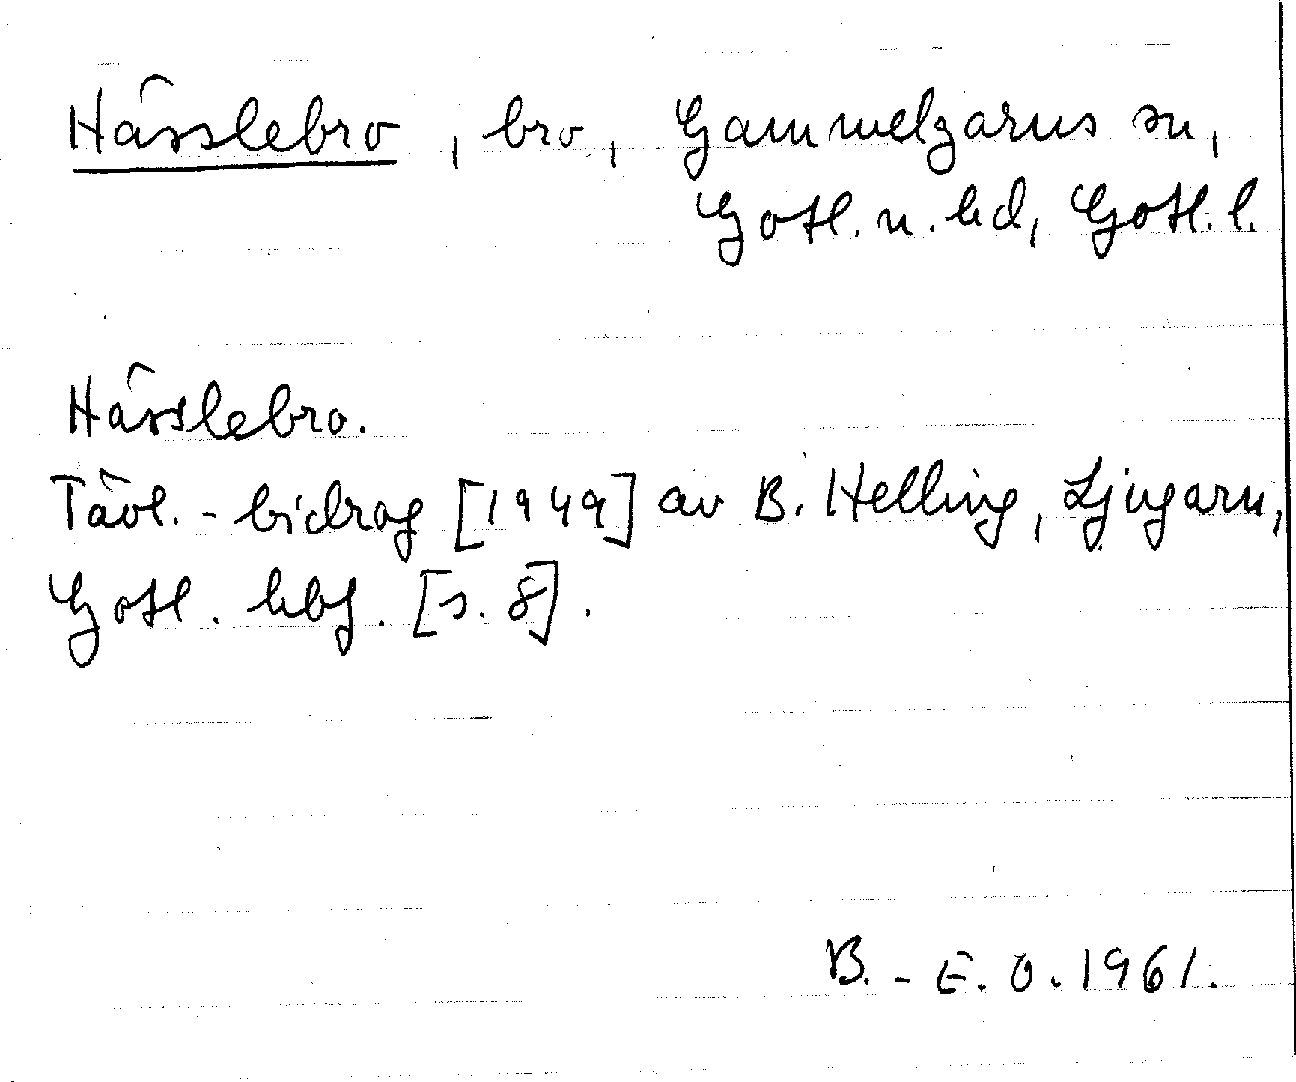 Hässlebro, bro, Gammelgarns sn,
Gotl. n. hd, Gotl. l.
Hässlebro.
Tävl. - bidrag [1949] av B. Helling, Ljugarn,
Gotl. hbf. [s. 8].
B. - E. O. 1961.